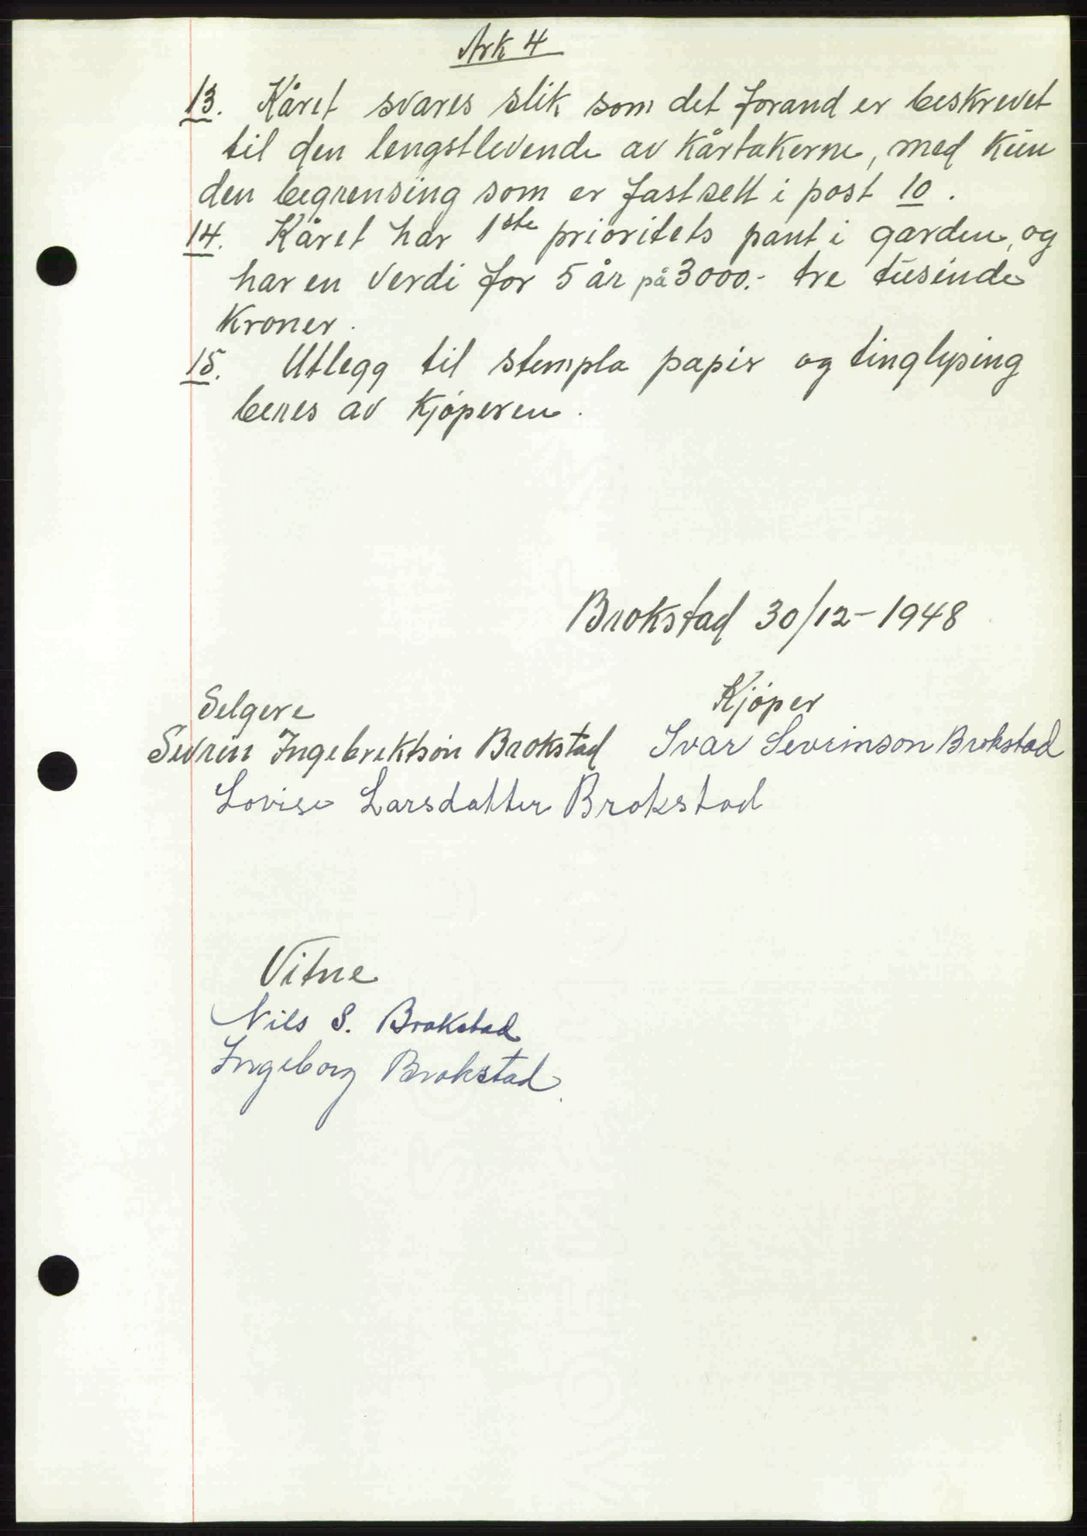 Ark 4
13. Kåret svares slik som det forand er beskrevet
til den lengstlevende av Kårtakerne, med Kun
den begrensing som er fastsett i post 10.
14. Kåret har 1ste prioritets pant i garden, og
har en verdi for 5 år på 3000.- tre tusinde
Kroner.
15. Utlegg til stempla papir og tinglysing
beres av Kjøperen.
Brokstad 30/12-1948
Selgere Kjøper
Sevrin Ingebriktson Brokstad Ivar Sevrinson Brokstad
Lovise Larsdatter Brokstad
Vitne
Nils S. Brokstad
Ingeborg Brokstad